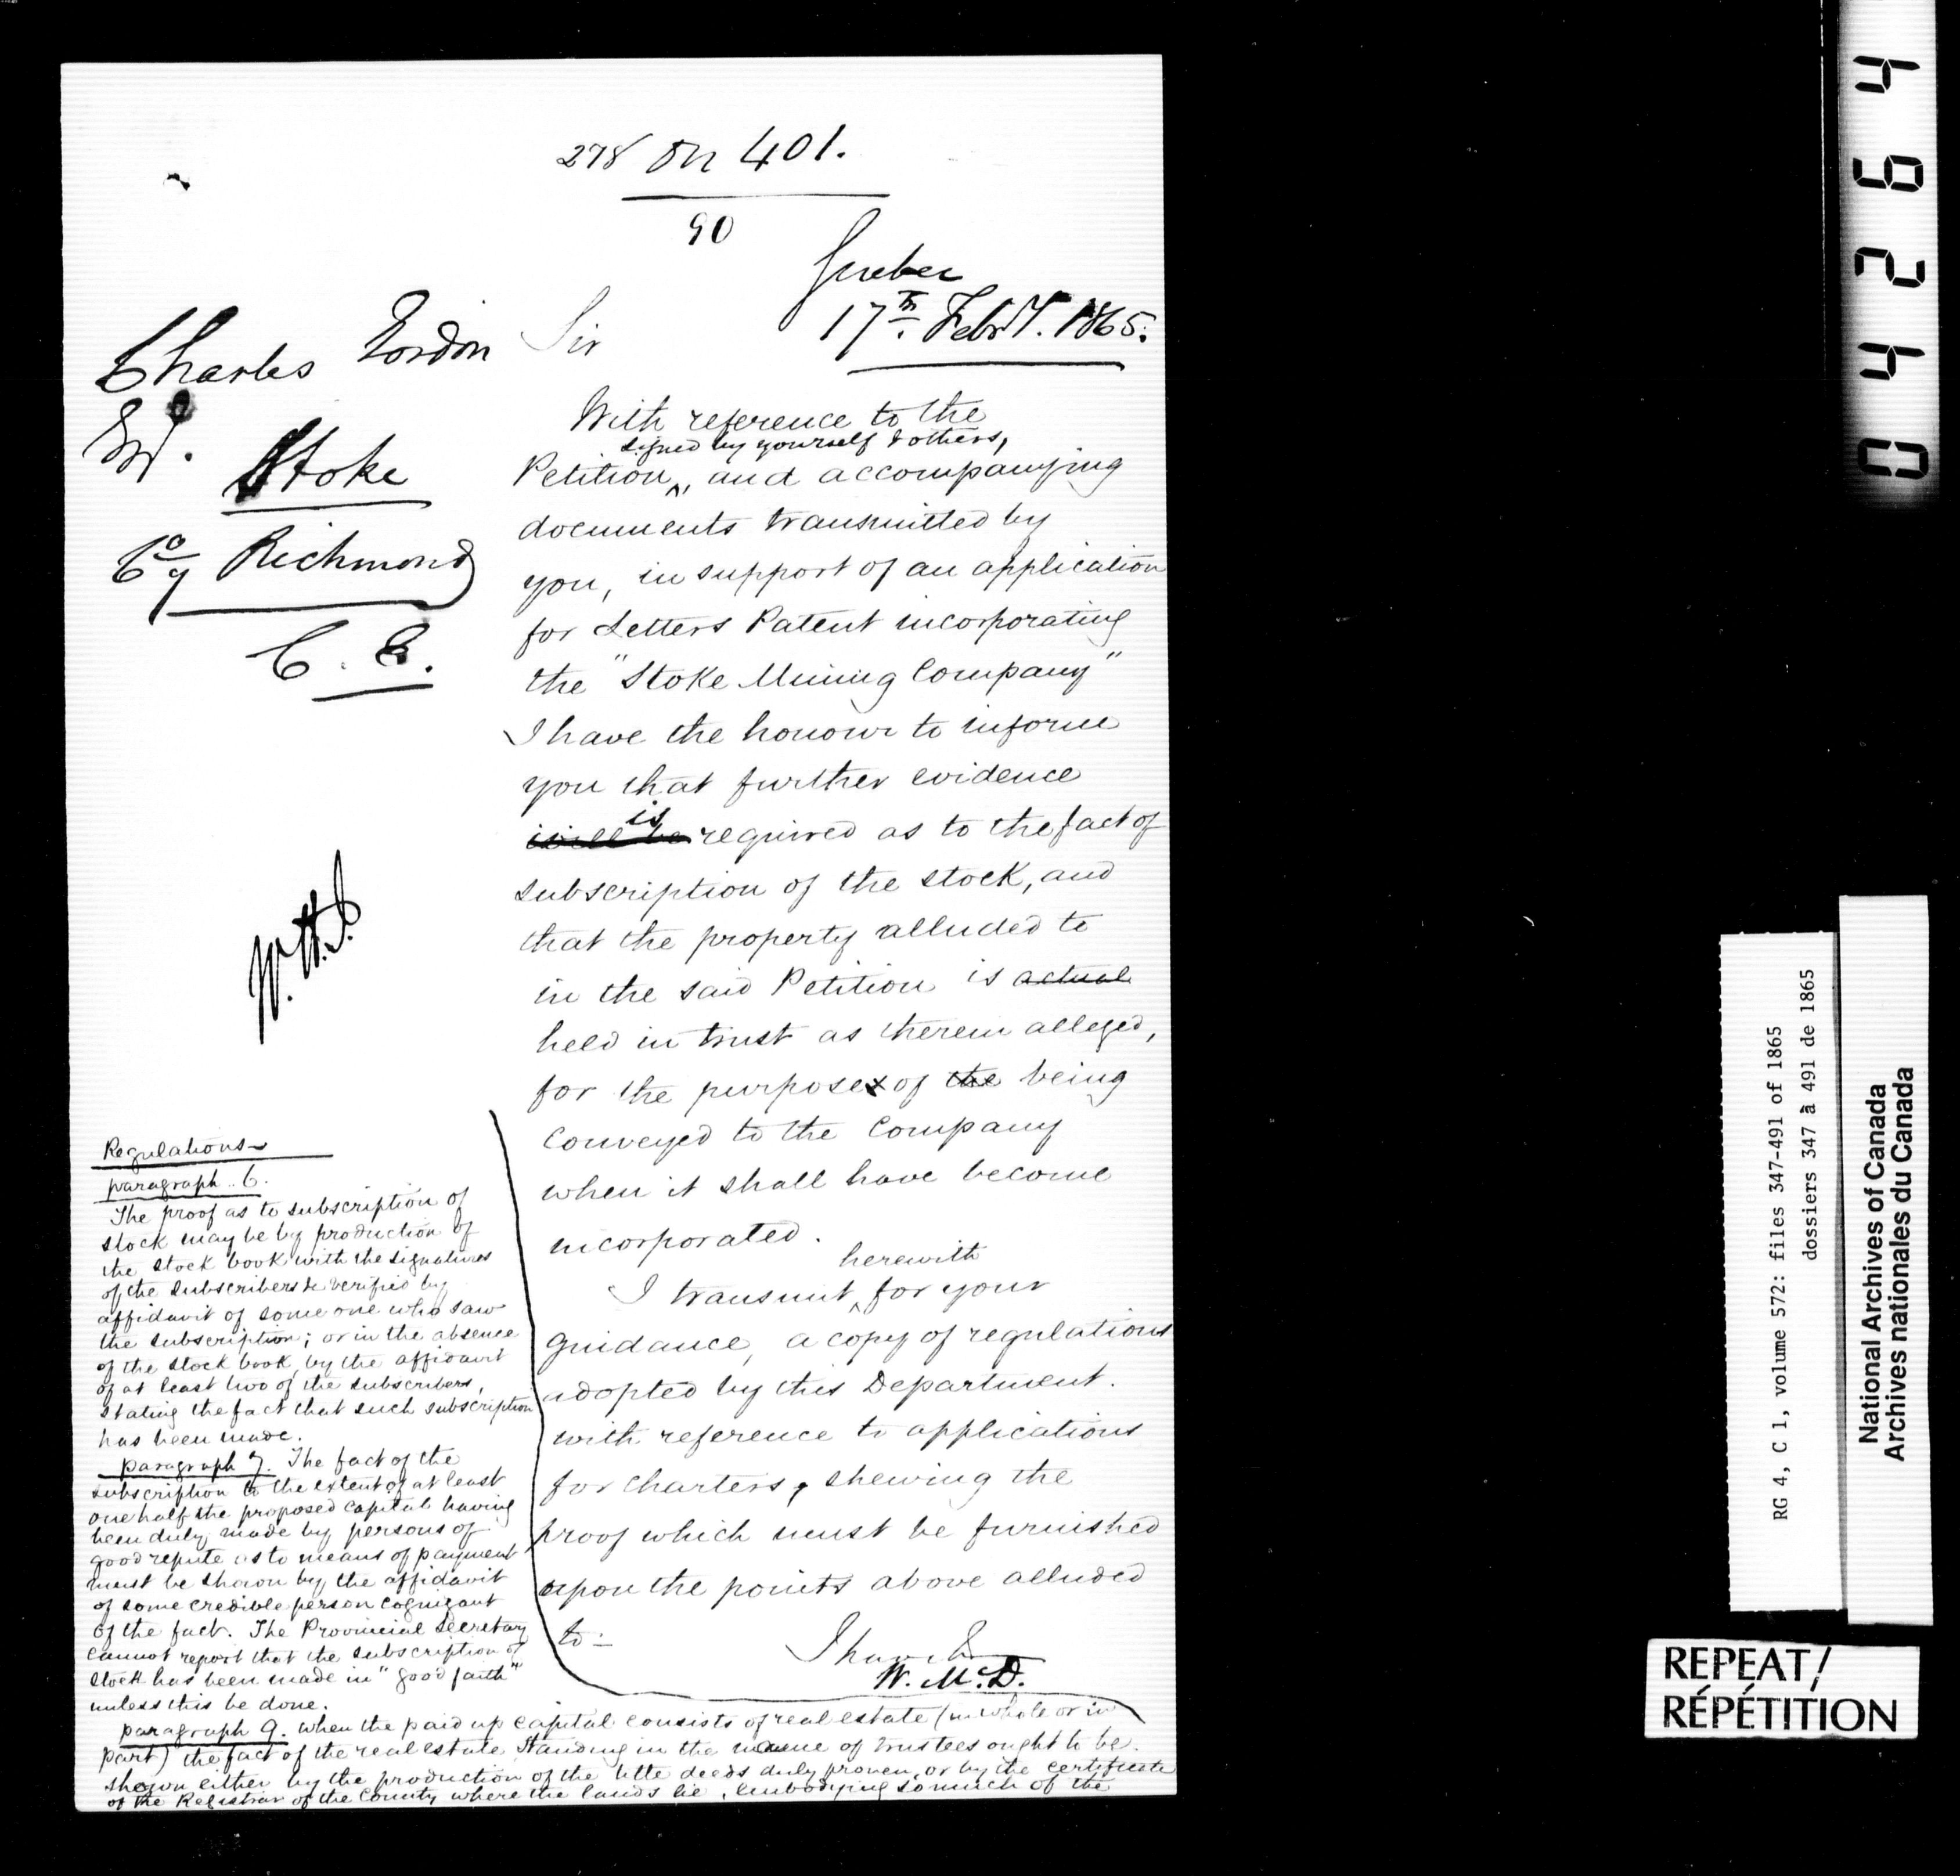 278 on 401.
90
Quebec
17th. Feby. 1865.
Charles Gordon
Esq.
Stoke
Co of Richmond
C. E.
Sir
With reference to the
signed by yourself & others,
Petition, and accompanying
documents transmitted by
you, in support of an application
for Letters Patent incorporating
the "Stoke Mining Company"
I have the honour to inform
you that further evidence
is
will be required as to the fact of
subscription of the stock, and
that the property alluded to
in the said Petition is actual
held in trust as therein alleged,
for the purposes of the being
conveyed to the Company
when it shall have become
incorporated.
herewith
I transmit, for your
guidance, a copy of regulations
adopted by this Department.
with reference to applications
for Charters, shewing the
proof which must be furnished
upon the points above alluded
to-
I have &
W. McD.
W.H.J.
Regulations
paragraph. 6.
The proof as to subscription of
stock may be by production of
the stock book with the signatures
of the subscribers & verified by
affidavit of some one who saw
the subscription; or in the absence
of the stock book, by the affidavit
of at least two of the subscribers,
stating the fact that such subscription
has been made.
paragraph 7. The fact of the
subscription to the extent of at least
one half the proposed capital having
been duly made by persons of
good repute as to means of payment
must be shown by the affidavit
of some credible person cognizant
of the fact. The Provincial Secretary
cannot report that the subscription of
stock has been made in "good faith"
unless this be done.
paragraph 9. when the paid up capital consists of real estate (in whole or in
part) the fact of the real estate standing in the name of trustees ought to be
shown either by the production of the title deeds duly proven, or by the certificate
of the Registrar of the County where the lands lie, embodying so much of the
04264
RG 4, C 1, volume 572: files 347-491 of 1865
dossiers 347 à 491 de 1865
National Archives of Canada
Archives nationales du Canada
REPEAT/
RÉPÉTITION